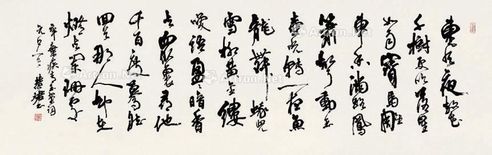 東風夜放花
千樹更吹落星
如雨寶馬雕
車香滿路鳳
簫聲動玉
壺光轉一夜魚
龍舞蛾兒
雪柳黃金縷
笑語盈盈暗香
去眾里尋他
千百度驀然
回首那人卻在
燈火闌珊處
辛棄疾青玉案詞
元夕